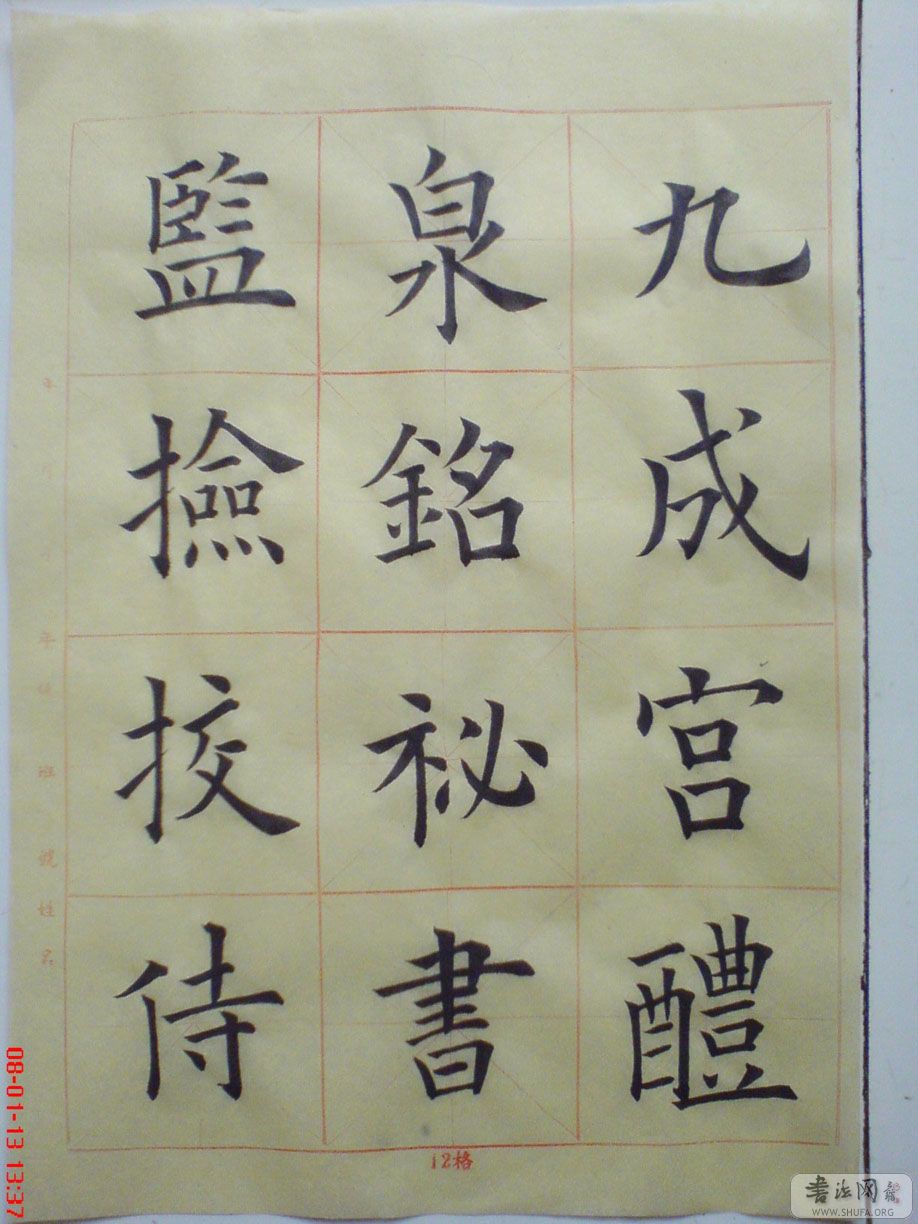 九成宫醴
泉銘祕書
監撿挍侍
年
班
號
姓
名
12格
08-01-13 13:37
書法网
WWW.SHUFA.ORG